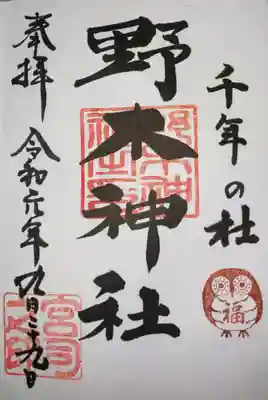 千年の杜
野木神社
奉拝
令和元年九月二十九日
福